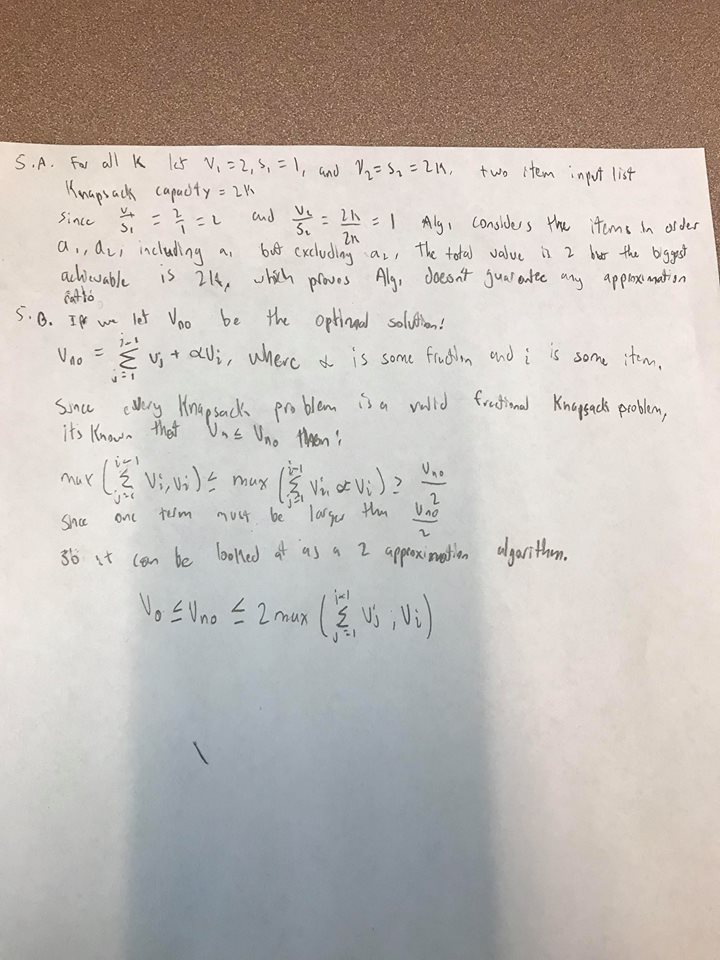 5.A. For all K let V₁ = 2, S₁ = 1, and V₂ = S₂ = 2K, two item input list
Knapsack capacity = 2K
since V₁/S₁ = 2/1 = 2 and V₂/S₂ = 2K/2K = 1 Alg, considers the items in order
a₁, a₂, including a₁ but excluding a₂, The total value is 2 but the biggest
achievable is 2K, which proves Alg, doesn't guarantee any approximation
ratio
5.B. If we let Vno be the optimal solution!
Vno = Σ_{j=1}^{i-1} Vj + αVi, where α is some fraction and i is some item.
Since every Knapsack problem is a valid fractional Knapsack problem,
its known that ≤ Vno then:
max (Σ^{i-1} Vi, Vi) ≤ max (Σ^{i-1} Vi, αVi) ≥ Vno/2
Since one term must be larger than Vno/2
So it can be looked at as a 2 approximation algorithm.
Vo ≤ Vno ≤ 2 max (Σ_{j=1}^{i-1} Vj, Vi)